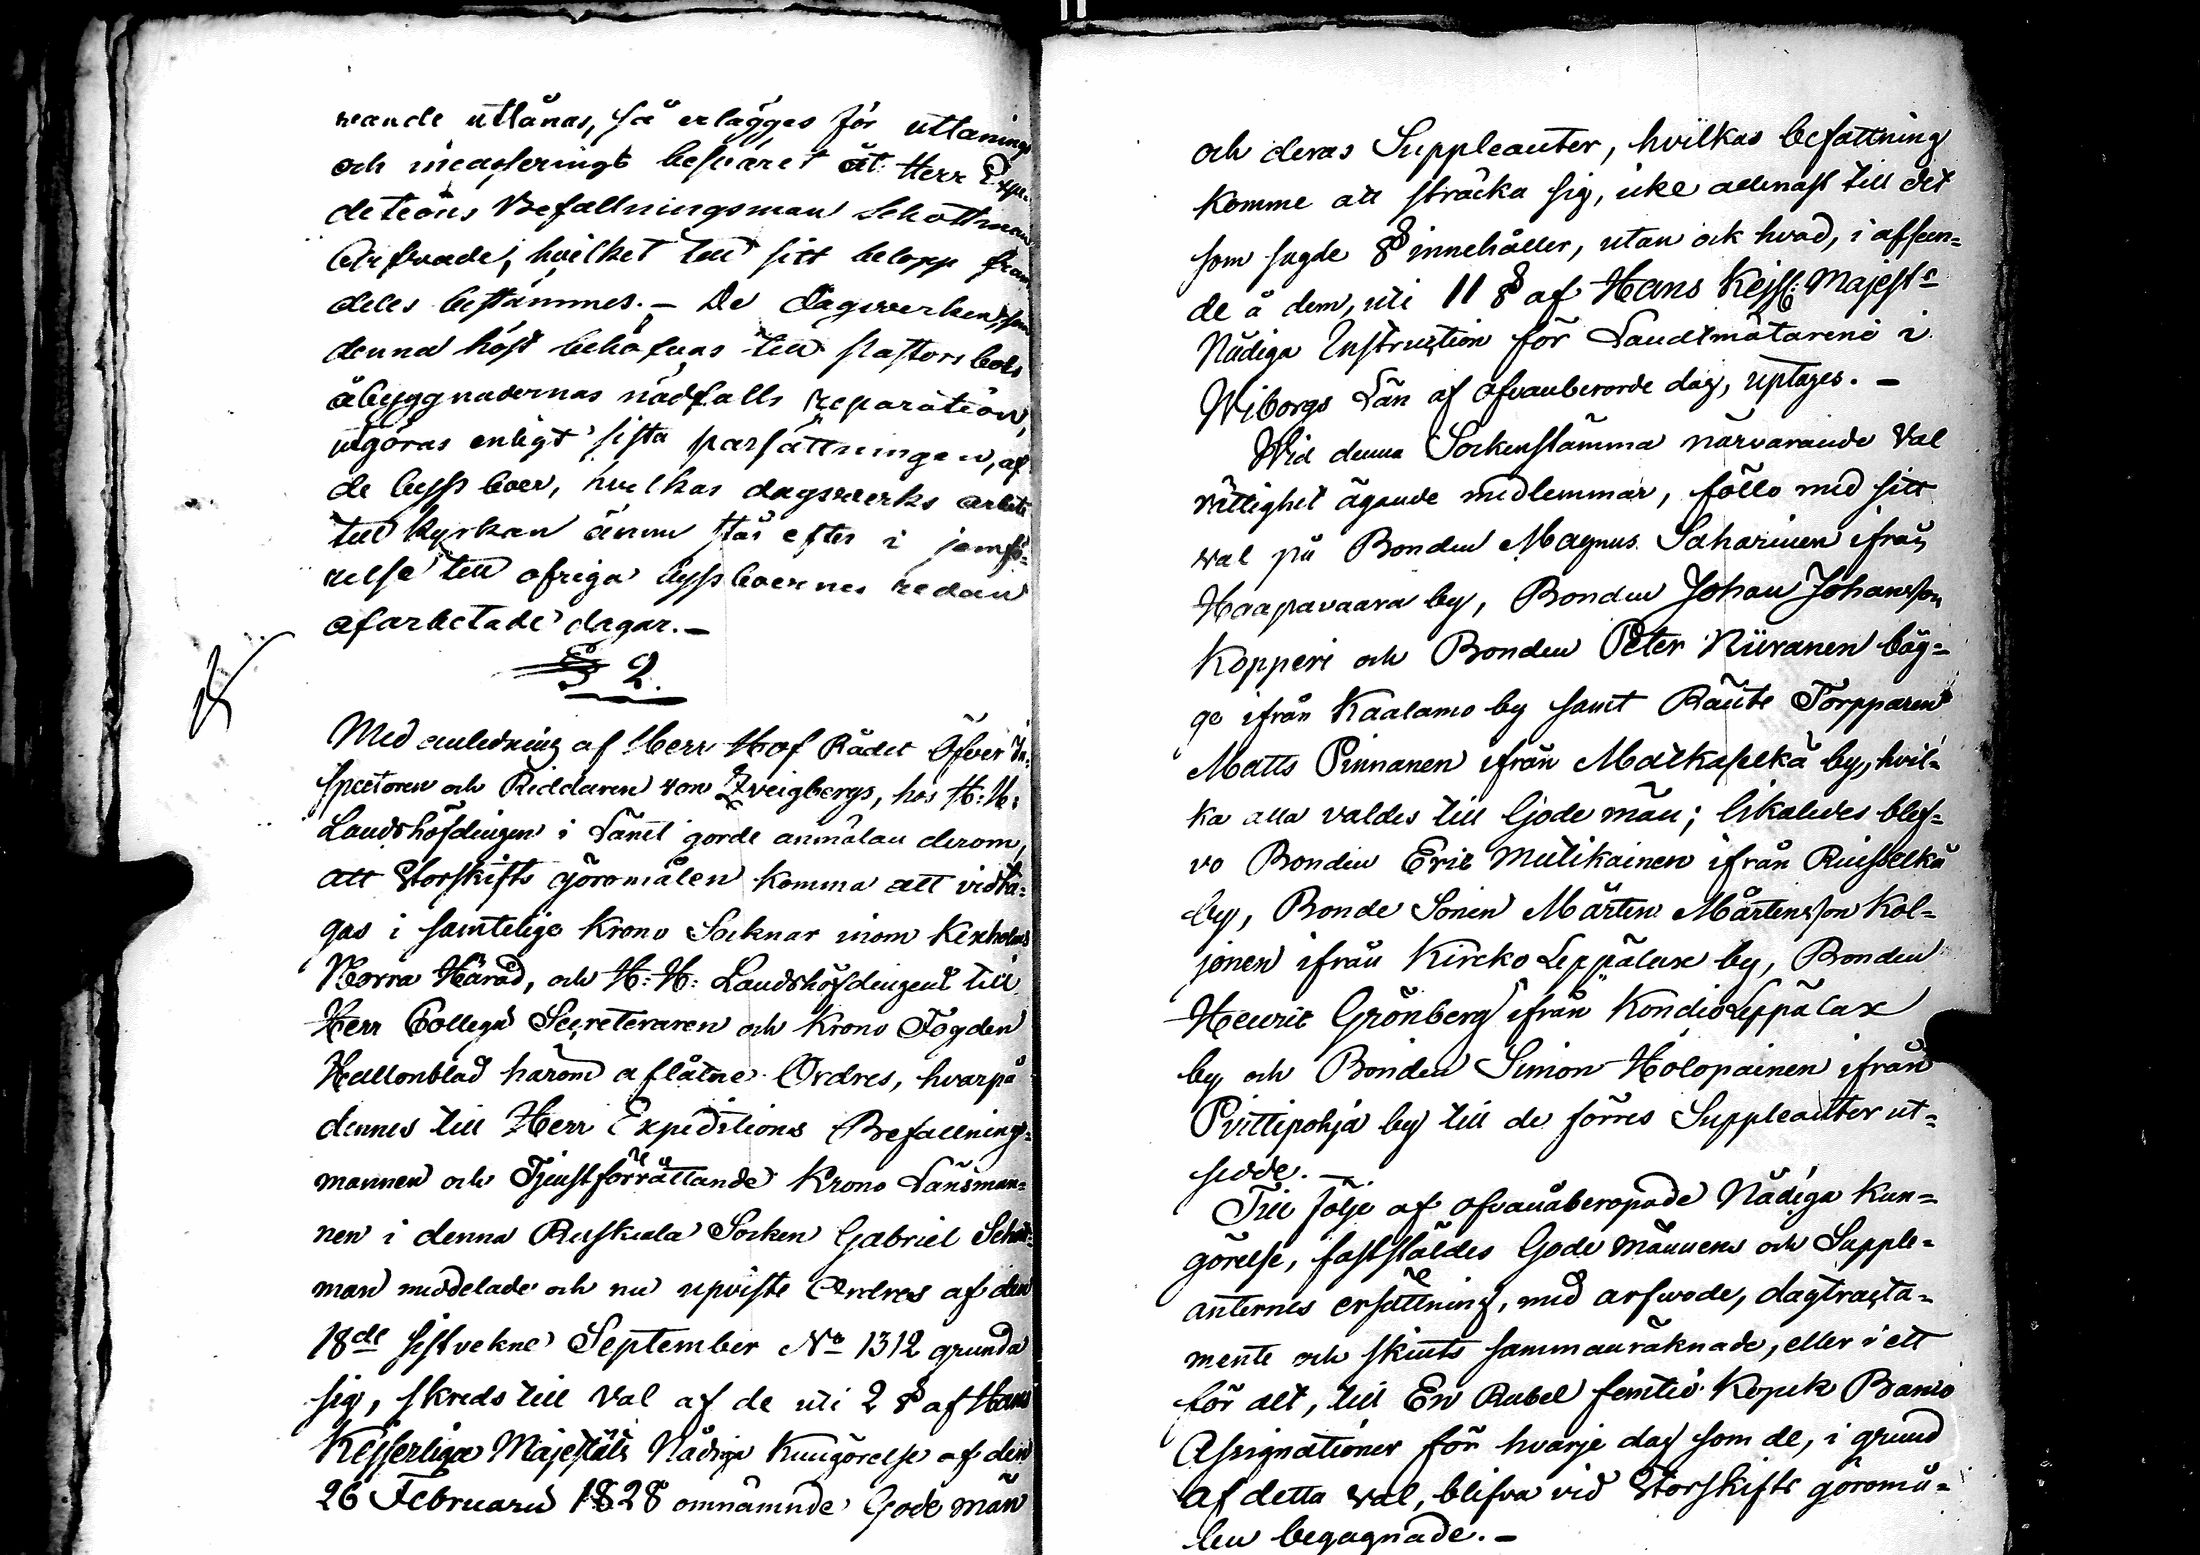 rande utlånas, så erlägges för utlånings
och incasserings besväret åt Herr Expe-
ditions Befallningsman Schottman
Arfvode, hvilket till sitt belopp fram
deles bestämmes. – De dagsverken, som
denna höst behöfvas till Pastors bols
åbyggnadernas nödfalls reparation,
utgöras enligt sista parsättningen, af
de byssboer, hvilkas dagsverks arbete
till Kyrkan ännu står efter i jemfö-
relse till öfriga byssboernes redan
afarbetade dagar. –
§ 2.
Med anledning af Herr Hof Rådet Öfver In-
spectoren och Riddaren von Zweigbergs, hos H: H:
Landshöfdingen i Länet gjorde anmälan derom,
att Storskifts göromålen komma att vidta-
gas i samtelige Krono Socknar inom Kexholms
Norra Härad, och H: H: Landshöfdingens till
Herr Collegii Secreteraren och Krono Fogden
Hallonblad härom aflåtne Ordres, hvarpå
dennes till Herr Expeditions Befallnings-
mannen och Tjenstförrättande Krono Länsman-
nen i denna Ruskiala Socken Gabriel Schott-
man meddelade och nu upviste Ordres af den
18de sistvekne September No 1312 grunda
sig, skreds till Val af de uti 2 § af Hans
Kejserliga Majestäts Nådiga Kungörelse af den
26 Februarii 1828 omnämnde Gode män
och deras Suppleanter, hvilkas befattning
komme att sträcka sig, icke allenast till det
som sagde § innehåller, utan ock hvad, i afseen-
de å dem, uti 11 § af Hans Kejsl: Majests
Nådiga Instruction för Landtmätarene i
Wiborgs Län af ofvanberorde dag, uptages. –
Wid denna Sockenstämma närvarande Val
rättighet ägande medlemmar, föllo med sitt
val på Bonden Magnus Saharinen ifrån
Haapavaara by, Bonden Johan Johansson
Kopperi och Bonden Peter Niiranen båg-
ge ifrån Kaalamo by samt Rånte Torpparen
Matts Pinnanen ifrån Matkaselkä by, hvil-
ka alla valdes till Gode män; likaledes blef-
vo Bonden Eric Mutikainen ifrån Ruisselkä
by, Bonde Sonen Mårten Mårtensson Kol-
jonen ifrån Kircko Leppälax by, Bonden
Henric Grönberg ifrån Kondie Leppälax
by och Bonden Simon Holopainen ifrån
Pvittipohja by till de förres Suppleanter ut-
sedde. –
Till följe af ofvanåberopade Nådiga Kun-
görelse, fastställdes Gode männens och Supple-
anternes ersättning, med arfvode, dagtracta-
mente och skiuts sammanräknade, eller i ett
för alt, till En Rubel femtio Kopek Banco
Assignationer för hvarje dag som de, i grund
af detta val, blifva vid Storskifts göromå-
len begagnade. –